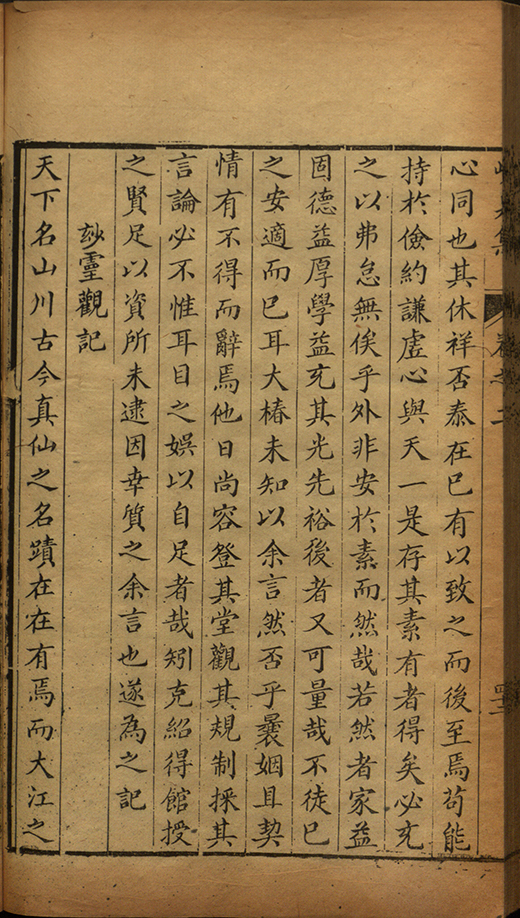 心同也其休祥否泰在巳有以致之而後至焉苟能
持於儉約謙虛心與天一是存其素有者得矣必充
之以弗怠無俟乎外非安於素而然哉若然者家益
固德益厚學益充其光先裕後者又可量哉不徒巳
之安適而巳耳大椿未知以余言然否乎曩姻且契
情有不得而辭焉他日尚容登其堂觀其規制採其
言論必不惟耳目之娛以自足者哉矧克紹得館授
之賢足以資所未逮因幸質之余言也遂為之記
玅靈觀記
天下名山川古今真仙之名蹟在在有焉而大江之
卷之二